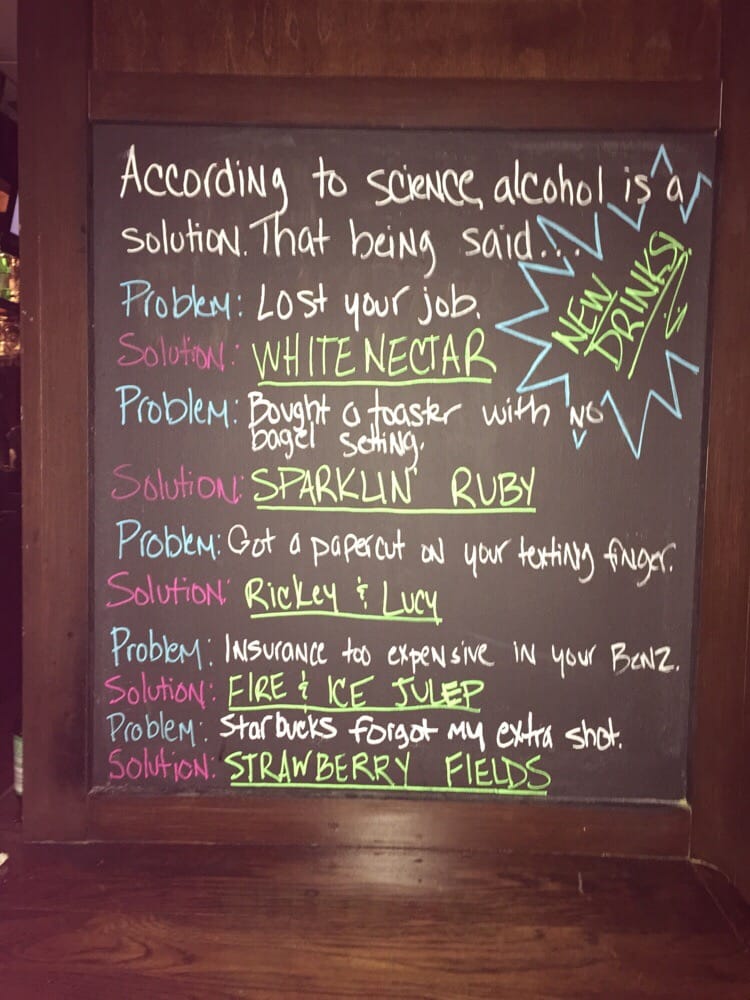 According to science, alcohol is a
solution. That being said...
NEW
DRINKS!
Problem: Lost your job.
Solution: WHITE NECTAR
Problem: Bought a toaster with no
bagel setting.
Solution: SPARKLIN' RUBY
Problem: Got a papercut on your texting finger.
Solution: Rickey & Lucy
Problem: Insurance too expensive in your Benz.
Solution: FIRE & ICE JULEP
Problem: Starbucks forgot my extra shot.
Solution: STRAWBERRY FIELDS